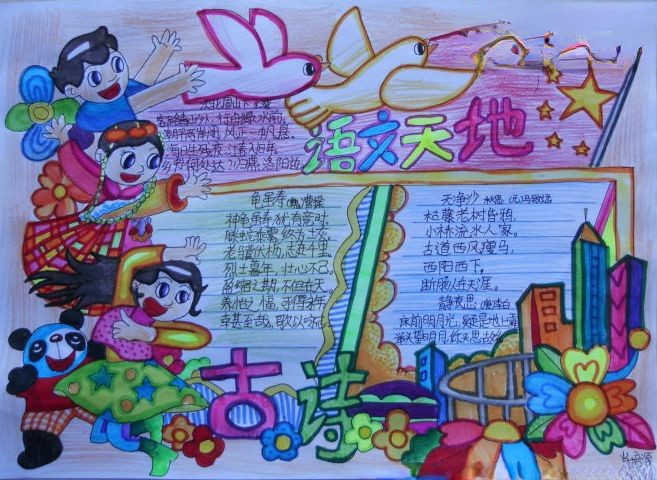 次北固山下 王湾
客路青山外，行舟绿水前。
潮平两岸阔，风正一帆悬。
海日生残夜，江春入旧年。
乡书何处达？归雁洛阳边。
语文天地
龟虽寿 曹操
神龟虽寿，犹有竟时。
腾蛇乘雾，终为土灰。
老骥伏枥，志在千里。
烈士暮年，壮心不已。
盈缩之期，不但在天。
养怡之福，可得永年。
幸甚至哉，歌以咏志。
天净沙 秋思 (元)马致远
枯藤老树昏鸦，
小林流水人家，
古道西风瘦马，
西阳西下，
断肠人在天涯。
静夜思 (唐)李白
床前明月光，疑是地上霜
举头望明月，低头思故乡
古诗